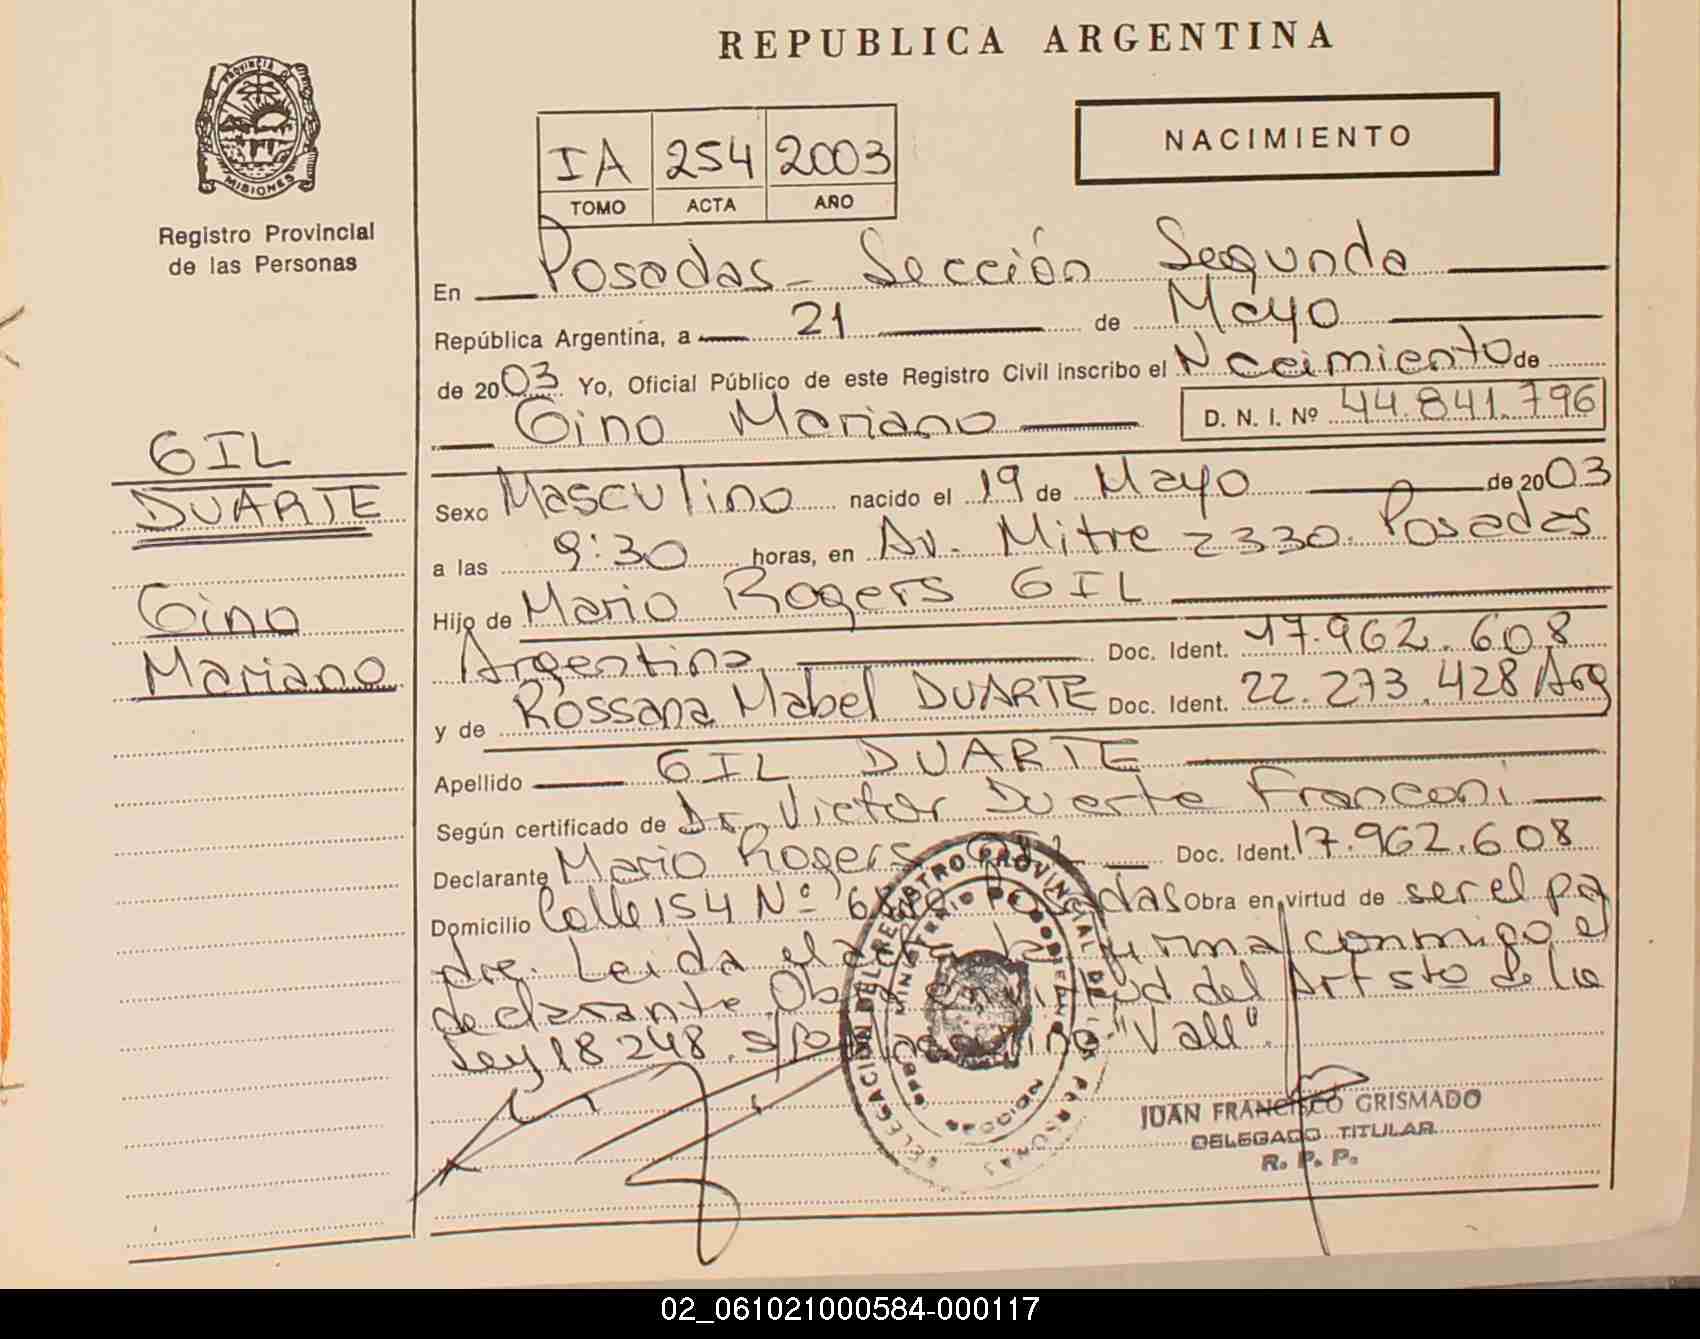 REPUBLICA ARGENTINA
PROVINCIA DE
MISIONES
Registro Provincial
de las Personas
IA 254 2003
TOMO ACTA AÑO
NACIMIENTO
En Posadas - Sección Segunda
República Argentina, a 21 de Mayo
de 2003 Yo, Oficial Público de este Registro Civil inscribo el Nacimiento de
Gino Mariano D. N. I. Nº 44.841.796
GIL
DUARTE
Gino
Mariano
Sexo Masculino nacido el 19 de Mayo de 2003
a las 9:30 horas, en Av. Mitre 2330. Posadas
Hijo de Mario Rogers GIL
Argentina Doc. Ident. 17.962.608
y de Rossana Mabel DUARTE Doc. Ident. 22.273.428 Arg
Apellido GIL DUARTE
Según certificado de Dr. Victor Duarte Franconi
Declarante Mario Rogers GIL Doc. Ident. 17.962.608
Domicilio Calle 154 Nº Posadas Obra en virtud de ser el pa
dre. Leida el acta la firma conmigo el
declarante. Obra en virtud del Art 5to de la
Ley 18248. "Vall".
DELEGACION DEL REGISTRO PROVINCIAL DE LAS PERSONAS
MINISTERIO DE GOBIERNO
JUAN FRANCISCO GRISMADO
DELEGADO TITULAR
R. P. P.
02_061021000584-000117